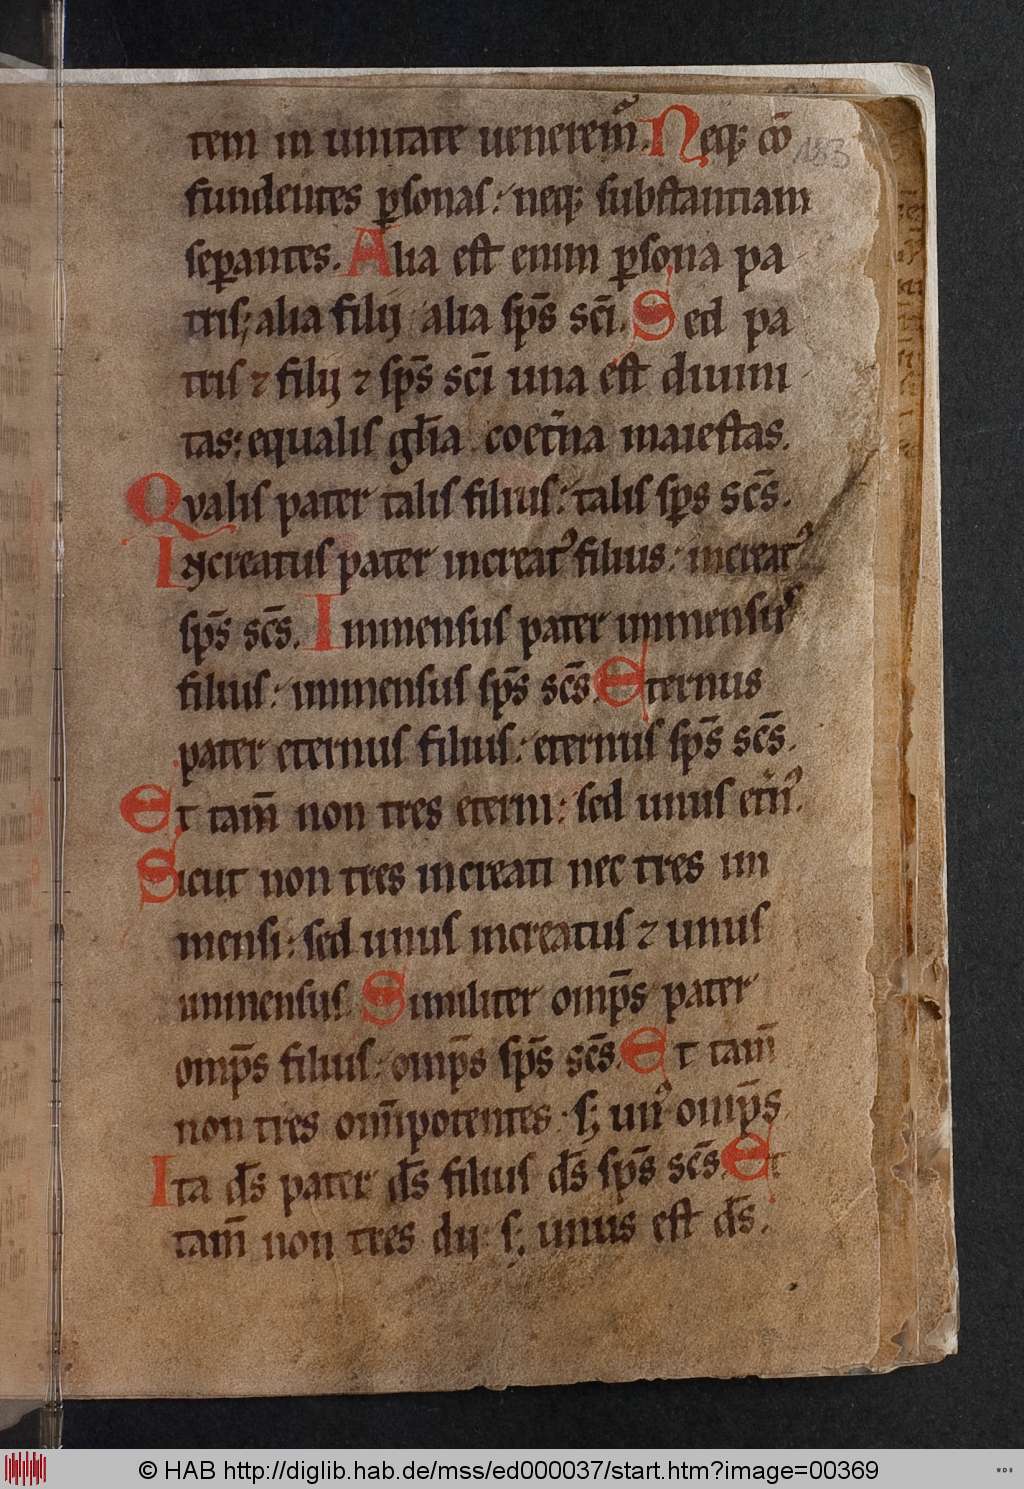 tem in unitate uenerem̄. Neq; cō
183
fundentes ꝑsonas: neq; substantiam
seꝑantes. Alia est enim ꝑsona pa
tris; alia filij alia sp̄s sc̄i. Sed pa
tris ⁊ filij ⁊ sp̄s sc̄i una est diuini
tas: equalis gl̄ia coet̄na maiestas.
Qvalis pater talis filius: talis sp̄s sc̄s.
Increatus pater increatꝰ filius: increatꝰ
sp̄s sc̄s. Immensus pater immensus
filius: immensus sp̄s sc̄s. Eternus
pater eternus filius: eternus sp̄s sc̄s.
Et tam̄ non tres eterni: sed unus et̄nꝰ.
Sicut non tres increati nec tres im
mensi: sed unus increatus ⁊ unus
immensus. Similiter omp̄s pater
omp̄s filius: omp̄s sp̄s sc̄s. Et tam̄
non tres om̄ipotentes. s; unꝰ omp̄s
Ita d̄s pater d̄s filius d̄s sp̄s sc̄s. Et
tam̄ non tres dij: s; unus est d̄s.
© HAB http://diglib.hab.de/mss/ed000037/start.htm?image=00369